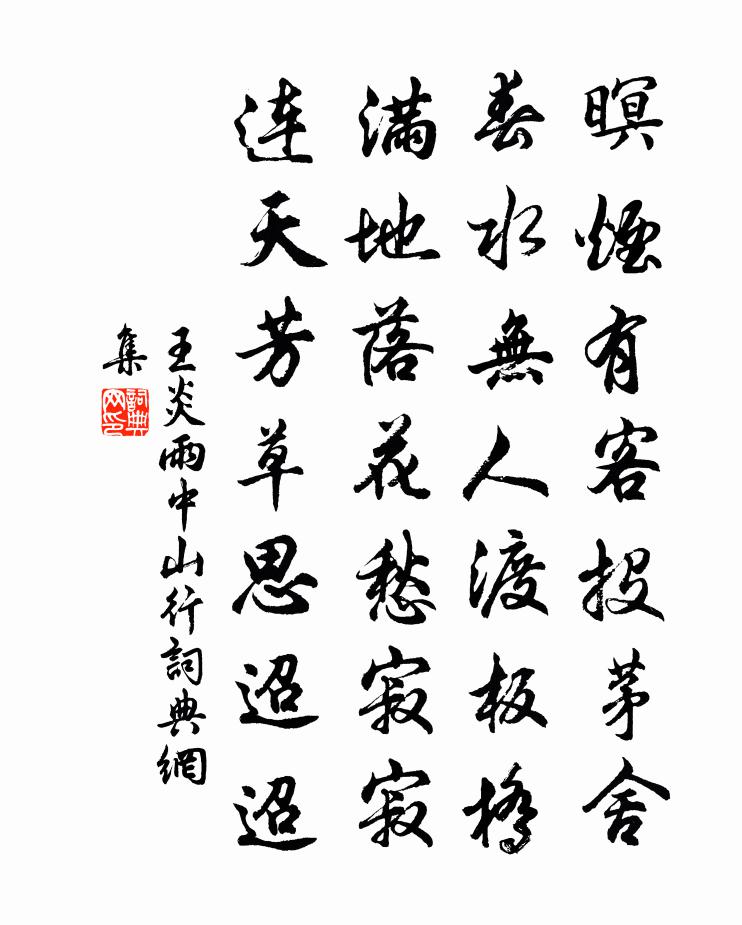 暝煙有客投茅舍
春水無人渡板橋
滿地落花愁寂寂
連天芳草思迢迢
王炎雨中山行詞典網
集
詞典網印